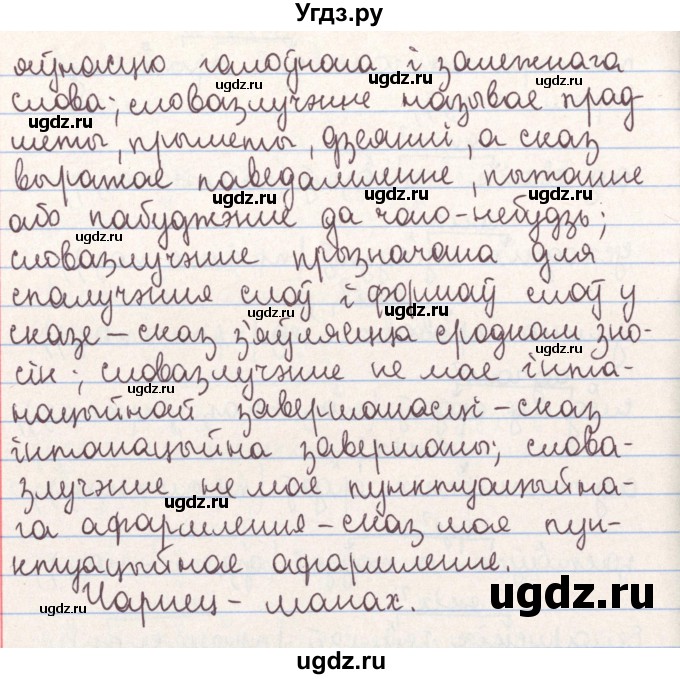 Угдз.ру
яўнасцю галоўнага і залежнага
слова; словазлучэнне называе прад-
меты, прыметы, дзеянні, а сказ
выражае паведамленне, пытанне
або пабуджэнне да чаго-небудзь;
словазлучэнне прызначана для
спалучэння слоў і формаў слоў у
сказе – сказ з'яўляецца сродкам зно-
сін; словазлучэнне не мае інта-
нацыйнай завершанасці – сказ
інтанацыйна завершаны; слова-
злучэнне не мае пунктуацыйна-
га афармлення – сказ мае пун-
ктуацыйнае афармленне.
Чарнец – манах.
ugdz.ru